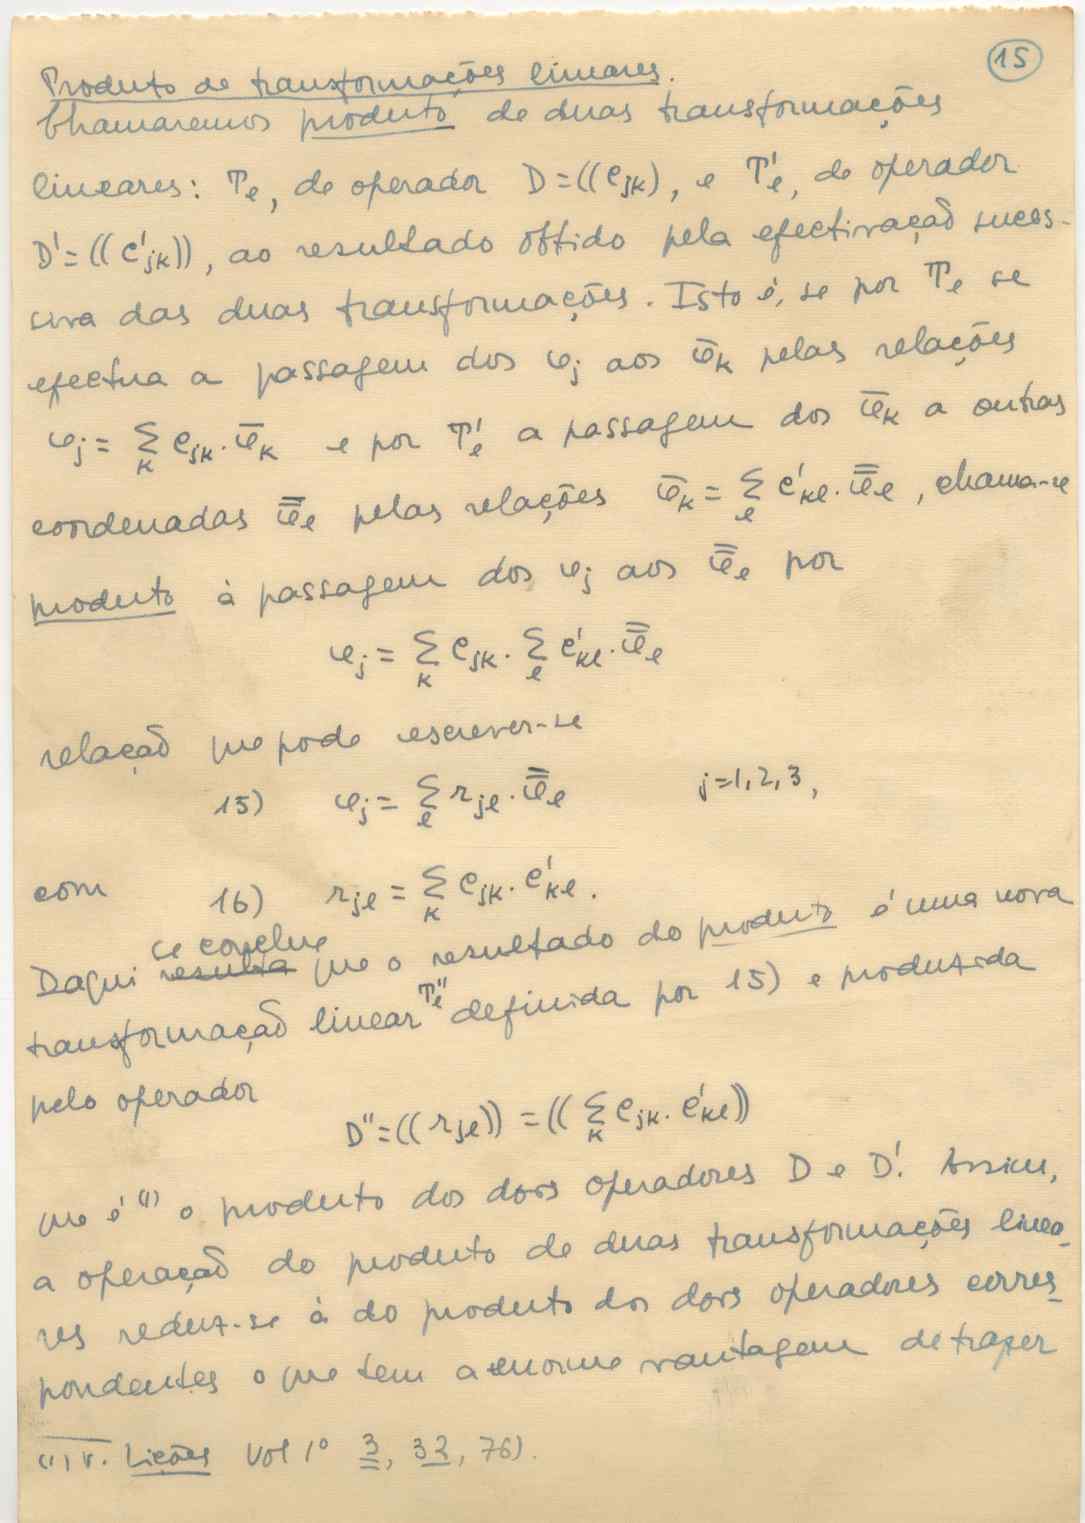 15
Produto de transformações lineares.
Chamaremos produto de duas transformações
lineares: Te, de operador D=((cjk), e T'e, de operador
D'=((c'jk)), ao resultado obtido pela efectivação suces-
siva das duas transformações. Isto é, se por Te se
efectua a passagem dos φj aos φ̄k pelas relações
φj = Σk cjk. φ̄k e por T'e a passagem dos φ̄k a outras
coordenadas φ̿l pelas relações φ̄k = Σl c'kl. φ̿l, chama-se
produto à passagem dos φj aos φ̿l por
φj = Σk cjk. Σl c'kl. φ̿l
relação que pode escrever-se
15) φj = Σl rjl. φ̿l j=1,2,3,
com 16) rjl = Σk cjk. c'kl.
se conclue
Daqui resulta que o resultado do produto é uma nova
transformação linear T''e definida por 15) e produzida
pelo operador
D''=((rjl)) = ((Σk cjk. c'kl))
que é (1) o produto dos dois operadores D e D'. Assim,
a operação do produto de duas transformações linea-
res reduz-se à do produto dos dois operadores corres-
pondentes o que tem a enorme vantagem de trazer
(1) v. Lições Vol 1º 3, 32, 76).